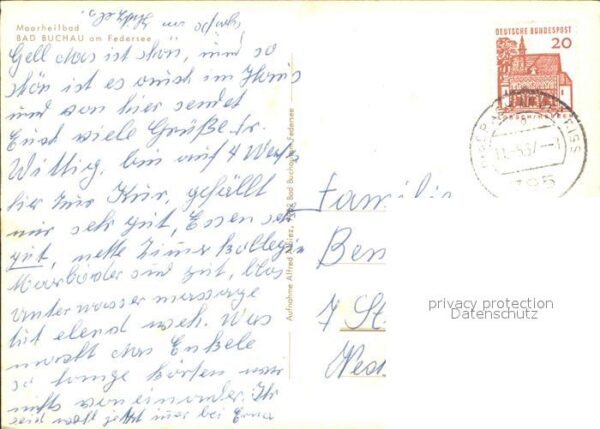 Moorheilbad
BAD BUCHAU am Federsee
Gell das ist schön, und so
schön ist es auch im Haus
und von hier sendet
Euch viele Grüße Fr.
Wittig, bin auf 4 Wochen
hier zur Kur, gefällt
mir sehr gut, Essen sehr
gut, nette Zimmerkollegin
Moorbäder sind gut, blos
Unterwassermassage
tut elend weh. Was
macht das Enkele
so lange hörten wir
nichts voneinander. Ihr
seid wohl jetzt immer bei Erna
Aufnahme Alfred
Bad Buchau am Federsee
DEUTSCHE BUNDESPOST
20
795
Familie
Ben
7 St
West
privacy protection
Datenschutz